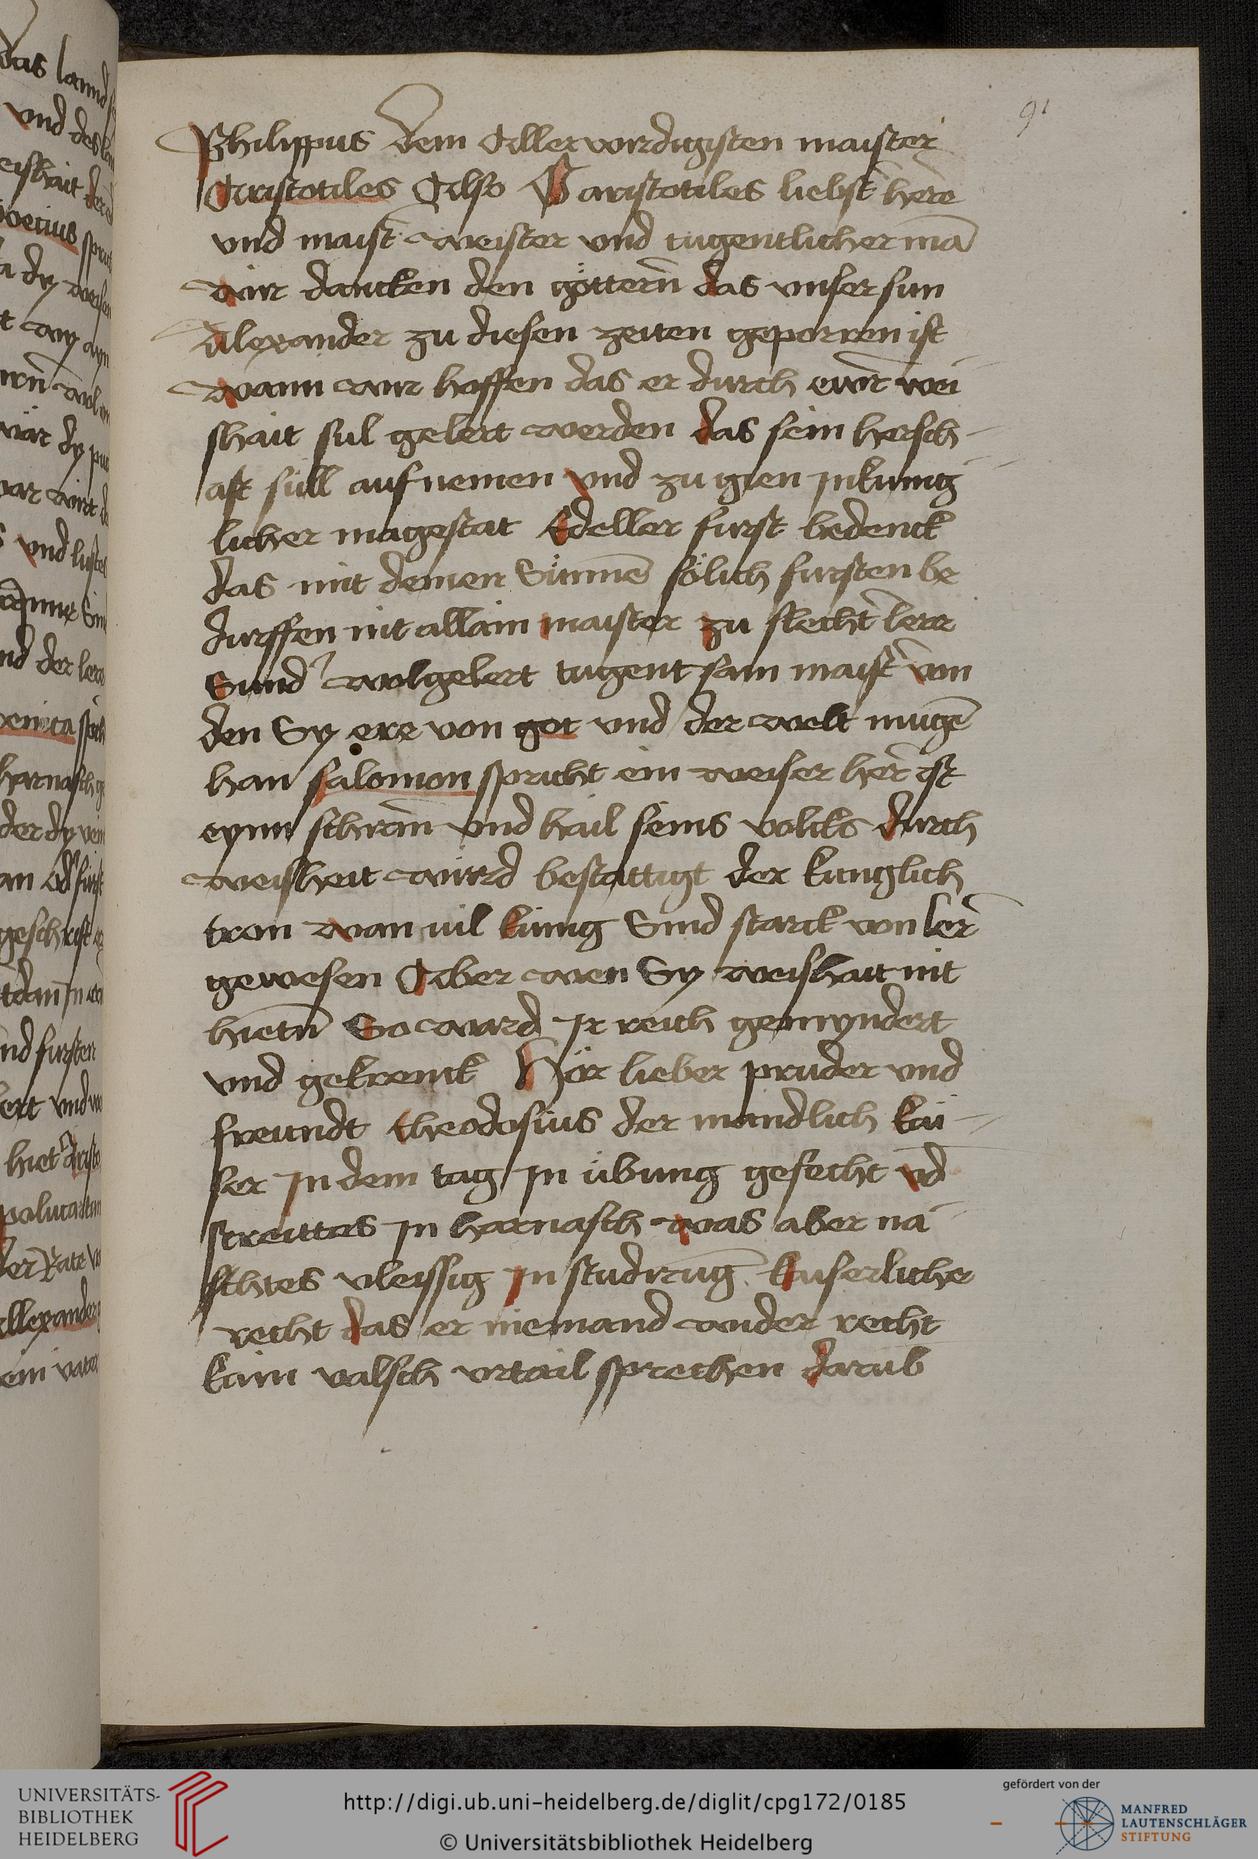 91
Philippus dem Aller wirdigisten maister
Aristotiles Also O aristotiles liebst̄ here
vnd maist̄ weister vnd tugentlicher mā
wir dancken den gӧttern̄ das vnser sun
Alexander zu diesen zeiten geporren ist
wann wir hoffen das er durch ewr̄ wei
shait sul gelert werden das sein hersch-
aft sull aufnemen vnd zu gien jn kunig
licher magestat Edeller furst bedenck
das mit deinen Sinnnē sӧlich fursten be
durffen nit allain maister zu slecht ler̄er
Sund' wolgelert tugentsam maist̄ von
den Sy ere von got vnd der welt mugē
han salomon spricht ein weiser her̄ ist
eynn schirm̄ vnd hail seins volcks durch
weisheit wirrd bestattigt der kunglich
tron wan uil kunig Sind starck von ler̄
gewesen Aber wen Sy weishait nit
hietn̄ So ward Ir reich gemyndert
vnd gekrenck Hӧr lieber pruder vnd
freundt theodosius der mandlich kai-
ser In dem tag In übung gefecht vd̄
streittes In harnasch was aber na
schtes vleissig In studirrūg kaiserlicher
recht das er niemand wider recht
kain valsch vrtail sprechen darūb
das lannd
vnd des
weishait der
boecius spric
vnd lustel
vnd der lere
Seneca spch
harnasch
geschrift
vnd fursten
lert vnd
hiet Aristo
allexander
sein vater
UNIVERSITÄTS-
BIBLIOTHEK
HEIDELBERG
http://digi.ub.uni-heidelberg.de/diglit/cpg172/0185
© Universitätsbibliothek Heidelberg
gefördert von der
MANFRED
LAUTENSCHLÄGER
STIFTUNG